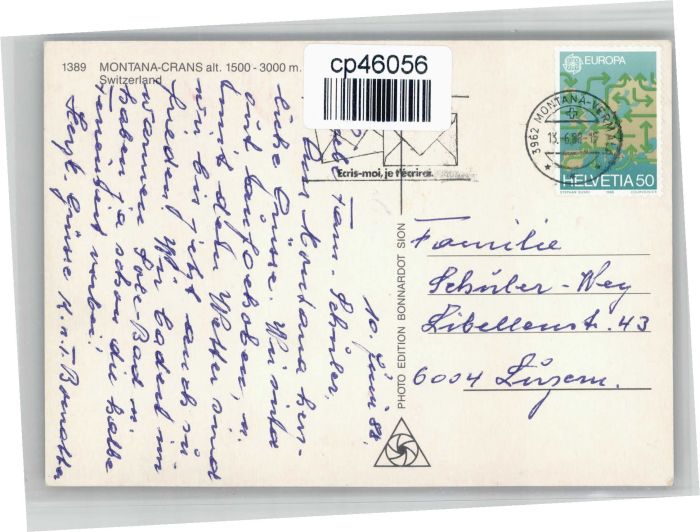 1389 MONTANA-CRANS alt. 1500 - 3000 m.
Switzerland
cp46056
Ecris-moi, je t'écrirai.
3962 MONTANA-VERMALA
13.-6.88-18
EUROPA
HELVETIA 50
10. Juni 88.
Liebe Fam. Schüler,
Aus Montana herz-
liche Grüsse. Wir sind
gut
mit dem Wetter sind
wir bis jetzt auch zu
frieden. Wir baden im
warmen Sole-Bad u.
haben ja schon die halbe
Ferienzeit vorbei.
Herzl. Grüsse K. u. T.
PHOTO EDITION BONNARDOT SION
Familie
Schüler-Wey
Libellenstr. 43
6004 Luzern.